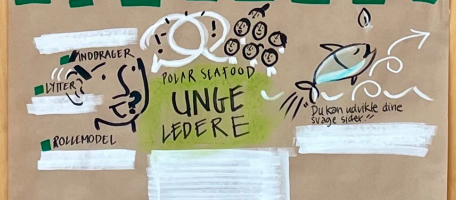 INDDRAGER
LYTTER
ROLLEMODEL
POLAR SEAFOOD
UNGE
LEDERE
"Du kan udvikle dine
svage sider"